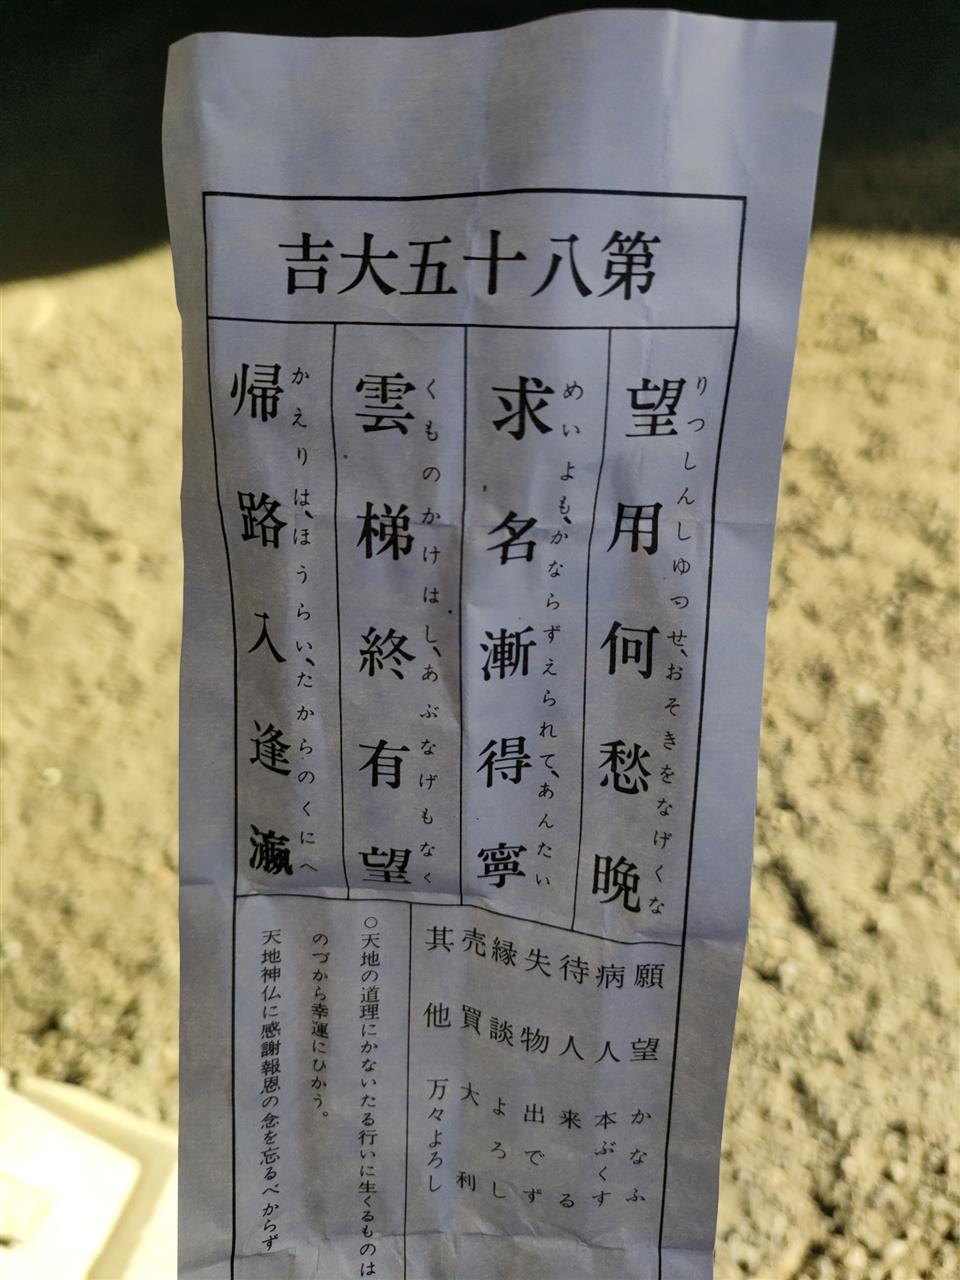 第八十五大吉
望用何愁晩
りつしんしゆつせ、おそきをなげくな
求名漸得寧
めいよも、かならずえられて、あんたい
雲梯終有望
くものかけはし、あぶなげもなく
帰路入逢瀛
かえりは、ほうらい、たからのくにへ
願望 かなふ
病人 本ぶくす
待人 来る
失物 出でず
縁談 よろし
売買 大利
其他 万々よろし
○天地の道理にかないたる行いに生くるものは
のづから幸運にひかう。
天地神仏に感謝報恩の念を忘るべからず